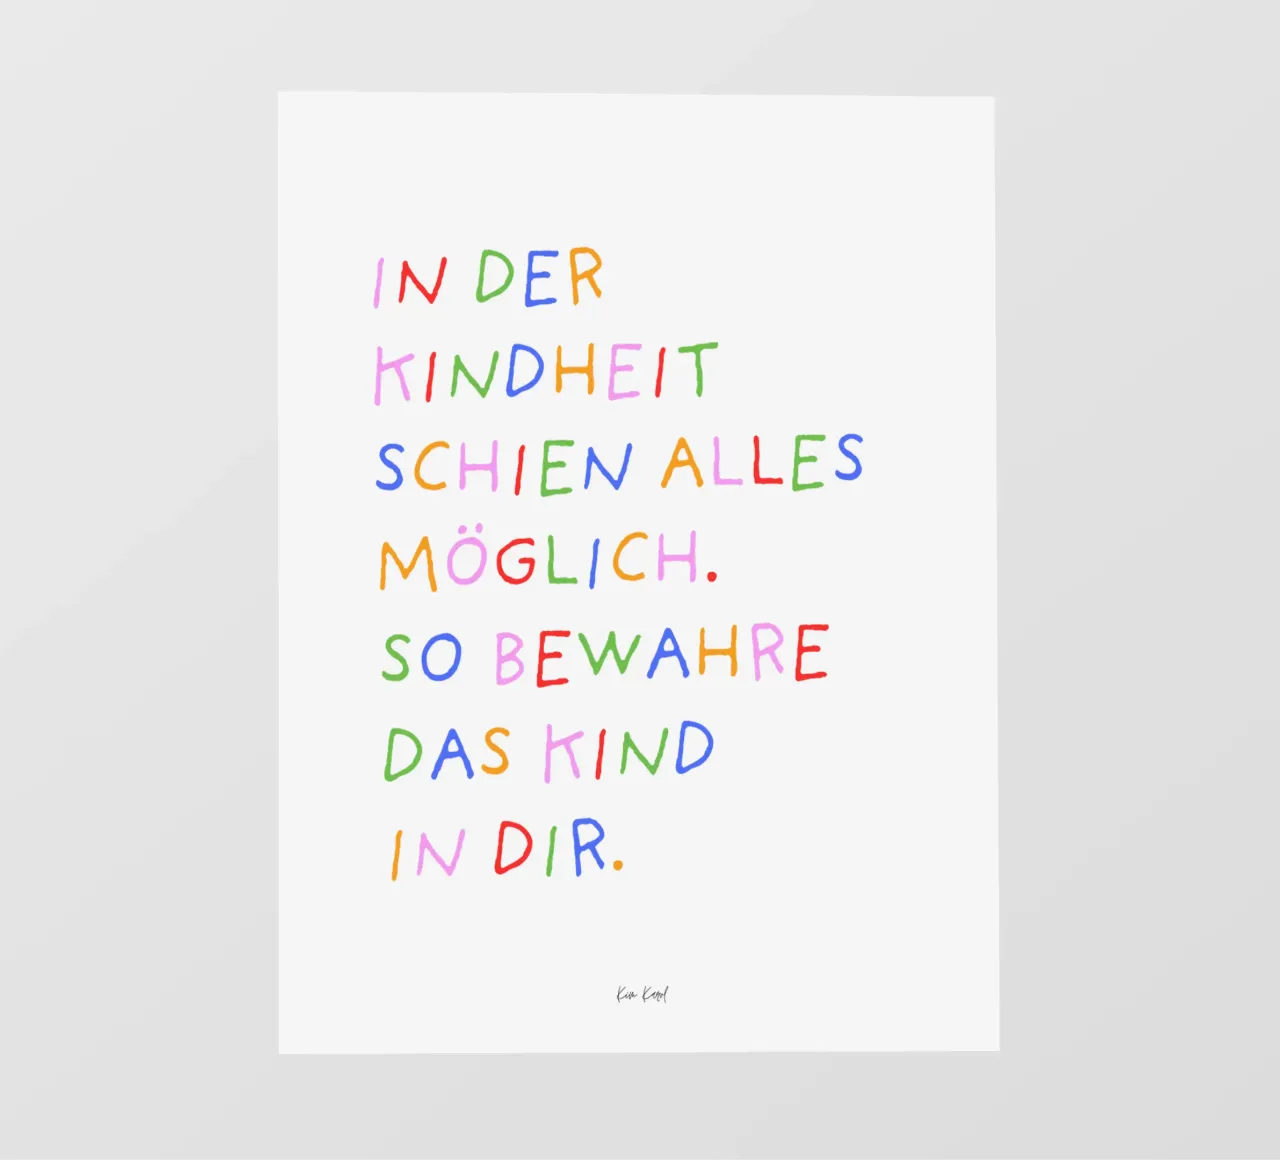 IN DER
KINDHEIT
SCHIEN ALLES
MÖGLICH.
SO BEWAHRE
DAS KIND
IN DIR.
Kim Karol